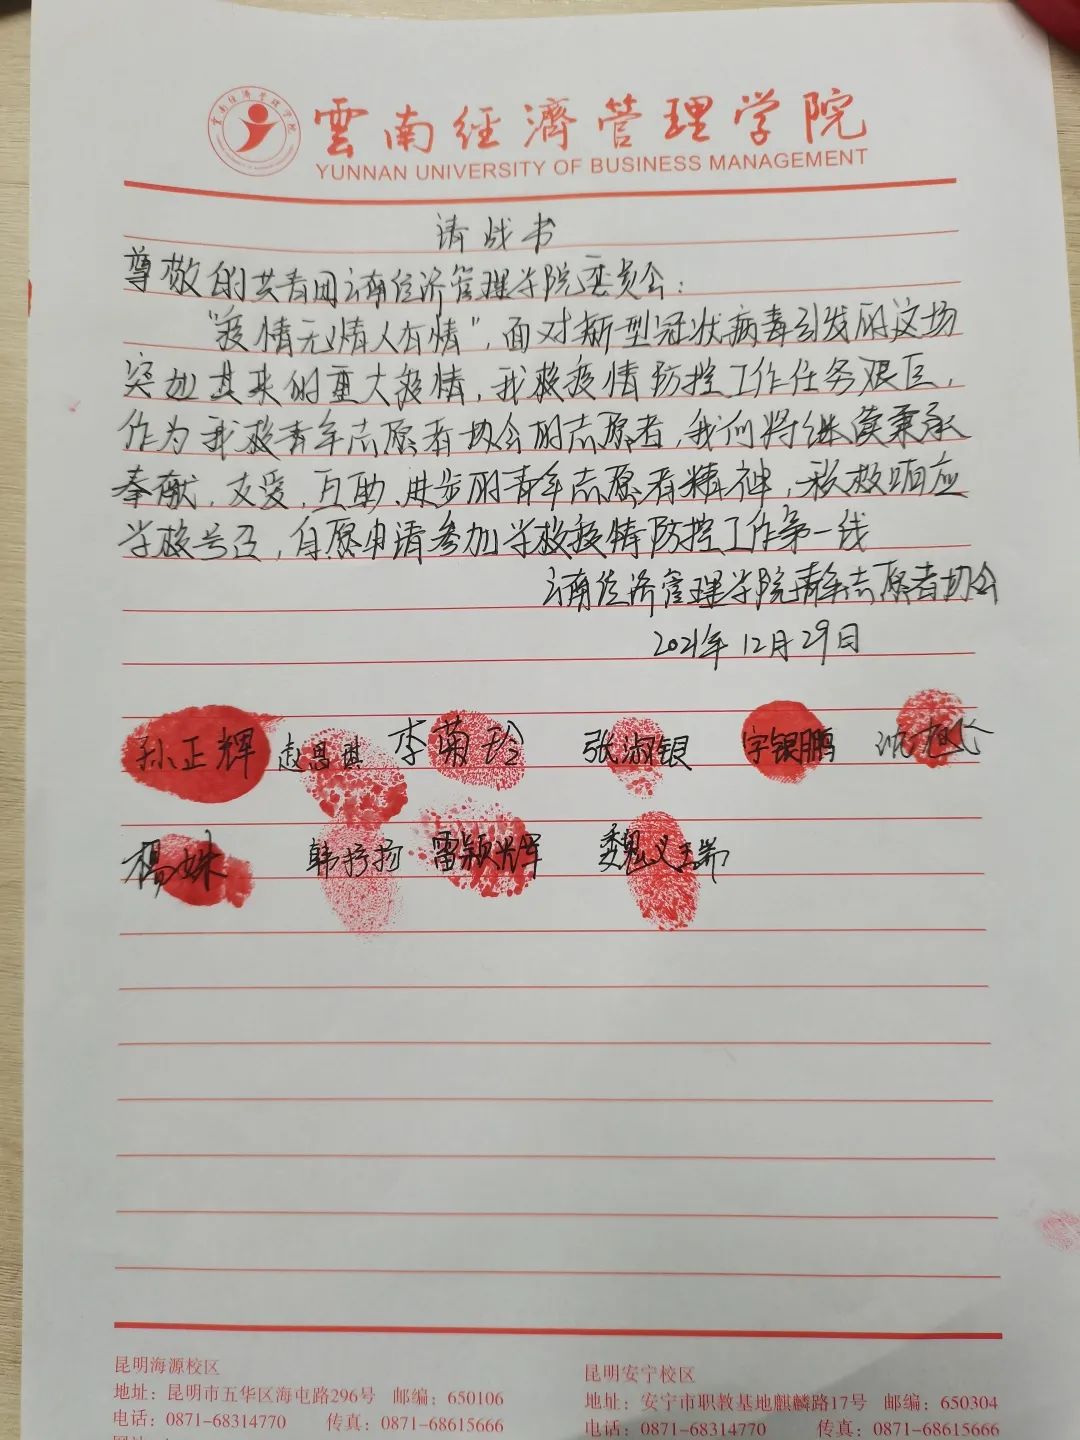 雲南經濟管理学院
YUNNAN UNIVERSITY OF BUSINESS MANAGEMENT
请战书
尊敬的共青团云南经济管理学院委员会：
“疫情无情人有情”，面对新型冠状病毒引发的这场
突如其来的重大疫情，我校疫情防控工作任务艰巨，
作为我校青年志愿者协会的志愿者，我们将继续秉承
奉献、友爱、互助、进步的青年志愿者精神，积极响应
学校号召，自愿申请参加学校疫情防控工作第一线
云南经济管理学院青年志愿者协会
2021年12月29日
孙正辉 赵思琪 李菊玲 张淑银 字银鹏
杨妹 韩 扬 雷颖辉 魏义
昆明海源校区 昆明安宁校区
地址：昆明市五华区海屯路296号 邮编：650106 地址：安宁市职教基地麒麟路17号 邮编：650304
电话：0871-68314770 传真：0871-68615666 电话：0871-68314770 传真：0871-68615666